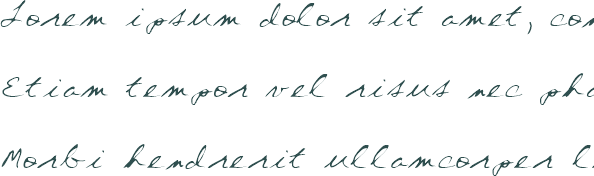 Lorem ipsum dolor sit amet, con
Etiam tempor vel risus nec pha
Morbi hendrerit ullamcorper li